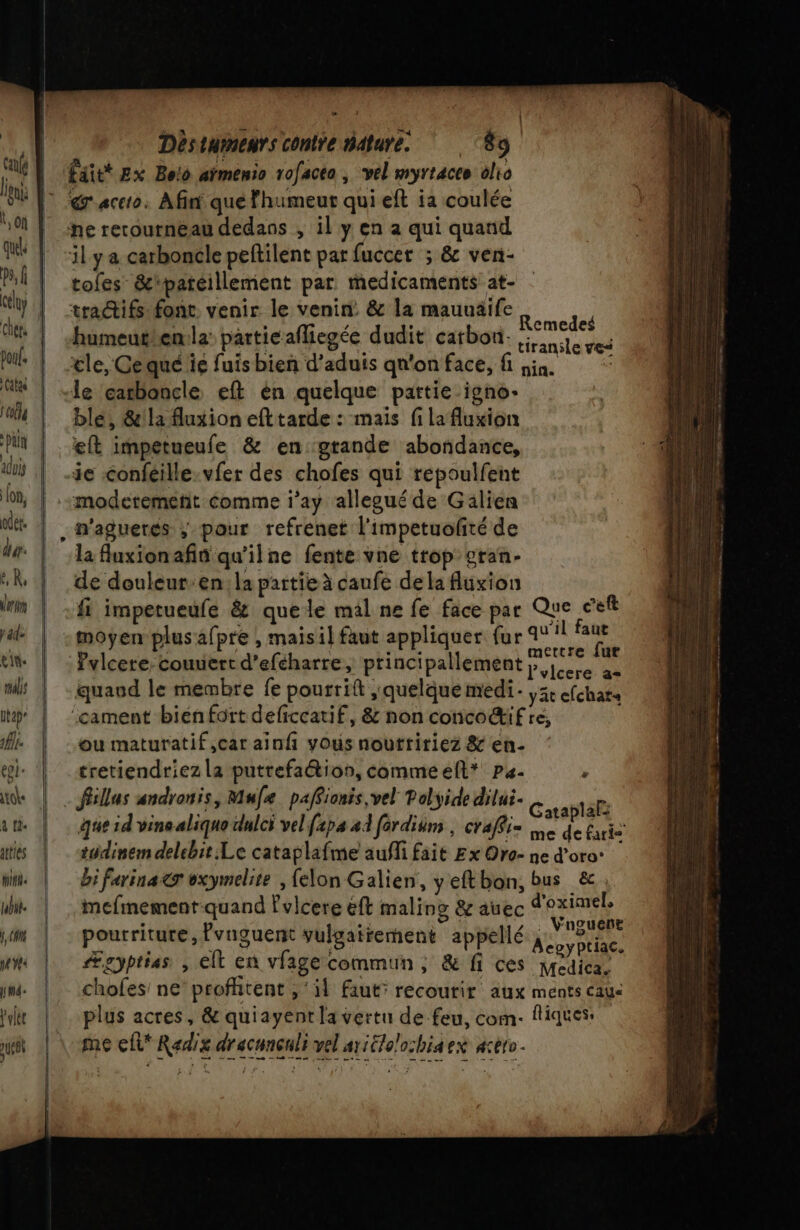 Des tumeurs contre nature. 89
fait* Ex Bolo armenio rosaceo, vel myrtaceo olio
& aceto. Afin que l'humeur qui eſt ia coulée
ne retourneau dedans, il y en a qui quand
il y a carboncle peſtilent par ſuccer ; & ven-
toſes & pareillement par medicaments at-
tractifs font venir le venin & la mauuaiſe
humeur en la partie aſſiegée dudit carbon-
cle, Ce que ie ſuis bien d'aduis qu'on face, ſi
le carboncle eſt en quelque partie igno-
ble, & la fluxion eſt tarde : mais ſi la fluxion
eſt impetueuſe & en grande abondance,
ie conſeille vſer des choſes qui repouſſent
moderement comme i'ay allegué de Galien
n'agueres, pour refrener l'impetuoſité de
la fluxion afin qu'il ne ſente vne trop gran-
de douleur en la partie à cauſe de la fluxion
ſi impetueuſe & que le mal ne ſe face par
moyen plus aſpre, mais il faut appliquer ſur
l'vlcere couuert d'eſcharre, principallement
quand le membre ſe pourriſt, quelque medi-
cament bien fort deſiccatif, & non concoctif
ou maturatif, car ainſi vous nourririez & en-
tretiendriez la putrefaction, comme eſt* Pa-
ſtillus andronis, Muſæ paſſionis, vel Polyide dilui-
que id vino aliquo dulci vel ſapa ad ſordium, craſſi-
tudinem delebit. Le cataplaſme auſſi fait Ex Oro-
bi farina & oxymelite, ſelon Galien, y eſt bon,
meſmement quand l'vlcere eſt maling & auec
pourriture, l'vnguent vulgairement appellé
Ægyptias, eſt en vſage commun ; & ſi ces
choſes ne proffitent, il faut recourir aux
plus acres, & qui ayent la vertu de feu, com-
me eſt* Radix dracunculi vel ariſtolochia ex aceto.
Remedes
tirans le ve-
nin.
Que c'eſt
qu'il faut
mettre ſur
l'vlcere a-
yãt eſchar-
re,
Cataplaſ-
me de fari-
ne d'oro-
bus &
d'oximel.
Vnguent
Aegyptiac.
Medica-
ments cau-
ſtiques.